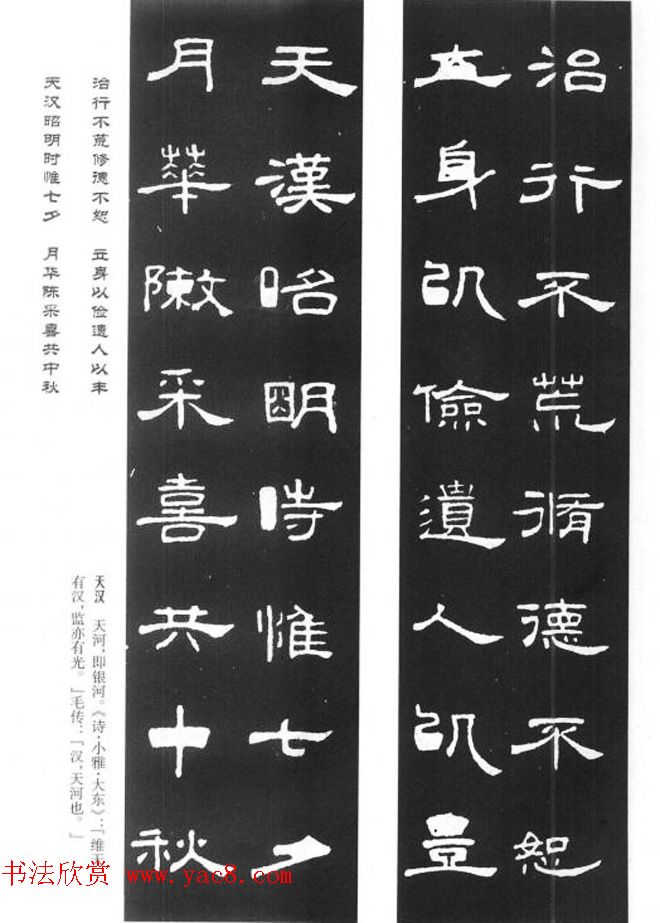 治行不荒脩德不恕
立身以儉遺人以豊
天漢昭明時惟七夕
月華敶采喜共中秋
治行不荒修德不恕 立身以俭遗人以丰
天汉昭明时惟七夕 月华陈采喜共中秋
天汉 天河，即银河。《诗·小雅·大东》：『维天
有汉，监亦有光。』毛传：『汉，天河也。』
书法欣赏 www.yac8.com